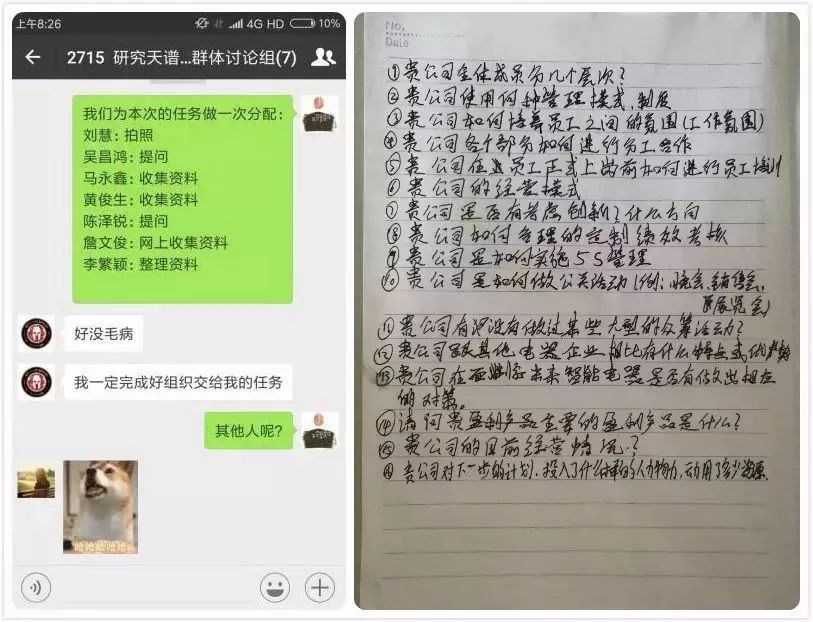 上午8:26
4G HD 10%
2715 研究天谱...群体讨论组(7)
我们为本次的任务做一次分配:
刘慧: 拍照
吴昌鸿: 提问
马永鑫: 收集资料
黄俊生: 收集资料
陈泽锐: 提问
詹文俊: 网上收集资料
李繁颖: 整理资料
好没毛病
我一定完成好组织交给我的任务
其他人呢?
哈哈哈哈哈
No.
Date
①贵公司全体成员分几个层次?
②贵公司使用何种管理模式、制度
③贵公司如何培养员工之间的氛围(工作氛围)
④贵公司各个部分如何进行分工合作
⑤贵公司在进员工正式上岗前如何进行员工培训
⑥贵公司的经营模式
⑦贵公司是否有考虑创新?什么方向
⑧贵公司如何合理的定制绩效考核
⑨贵公司是如何实施5S管理
⑩贵公司是如何做公关活动(例:晚会、销售会、
展览会)
⑪贵公司有没有做过某些大型的众筹活动?
⑫贵公司跟其他电器企业相比有什么特点或优势
⑬贵公司在面临未来智能电器是否有做出相应
的对策。
⑭请问贵盈利产品主要的盈利产品是什么?
⑮贵公司的目前经营情况?
⑯贵公司对下一步的计划,投入了什么样的人力物力,动用了多少资源.